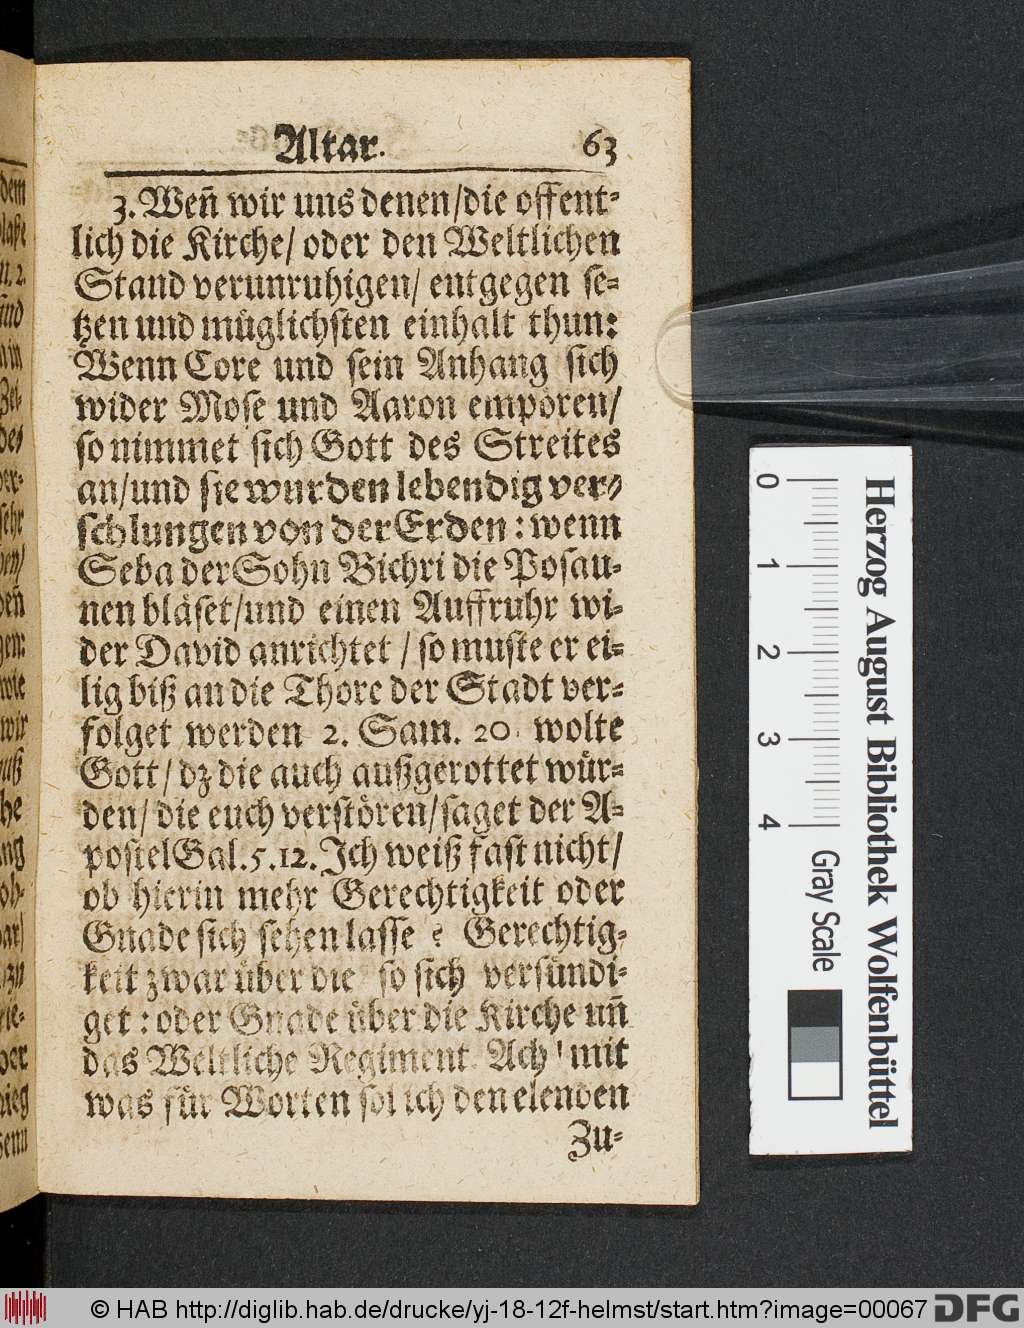 Altar. 63
3. Weñ wir uns denen/die offent-
lich die Kirche/ oder den Weltlichen
Stand verunruhigen/ entgegen se-
tzen und müglichsten einhalt thun:
Wenn Core und sein Anhang sich
wider Mose und Aaron empören/
so nimmet sich Gott des Streites
an/und sie wurden lebendig ver-
schlungen von der Erden: wenn
Seba der Sohn Bichri die Posau-
nen bläset/und einen Auffruhr wi-
der David anrichtet / so muste er ei-
lig biß an die Thore der Stadt ver-
folget werden 2. Sam. 20. wolte
Gott/ dz die auch außgerottet wür-
den/ die euch verstören/saget der A-
postel Gal. 5. 12. Ich weiß fast nicht/
ob hierin mehr Gerechtigkeit oder
Gnade sich sehen lasse ? Gerechtig-
keit zwar über die so sich versündi-
get: oder Gnade über die Kirche uñ
das Weltliche Regiment. Ach! mit
was für Worten sol ich den elenden
Zu-
Herzog August Bibliothek Wolfenbüttel
0 1 2 3 4 Gray Scale
© HAB http://diglib.hab.de/drucke/yj-18-12f-helmst/start.htm?image=00067 DFG